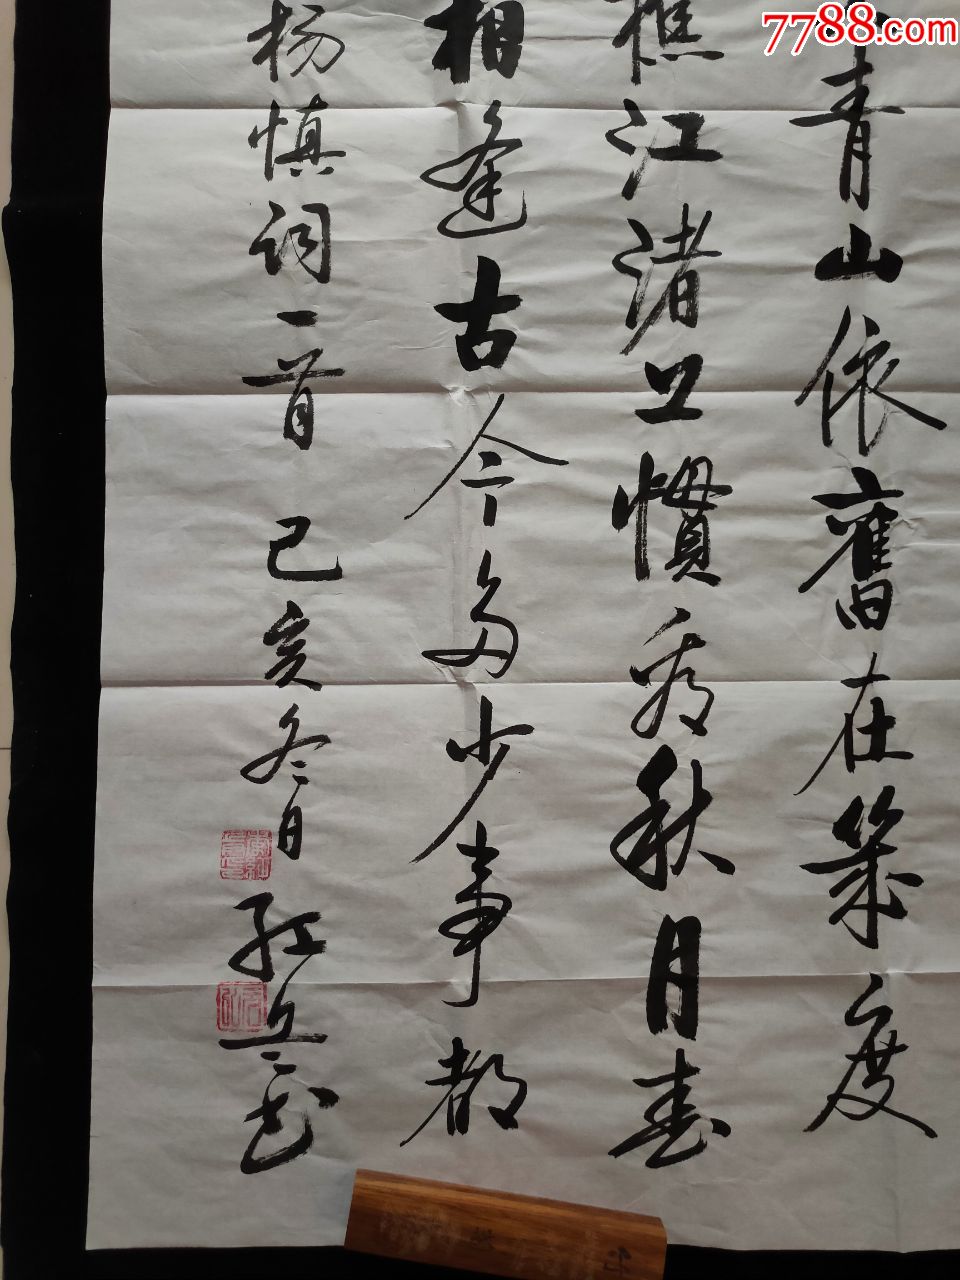 7788.com
青山依舊在幾度
樵江渚上慣看秋月春
相逢古今多少事都
杨慎词一首 己亥冬日